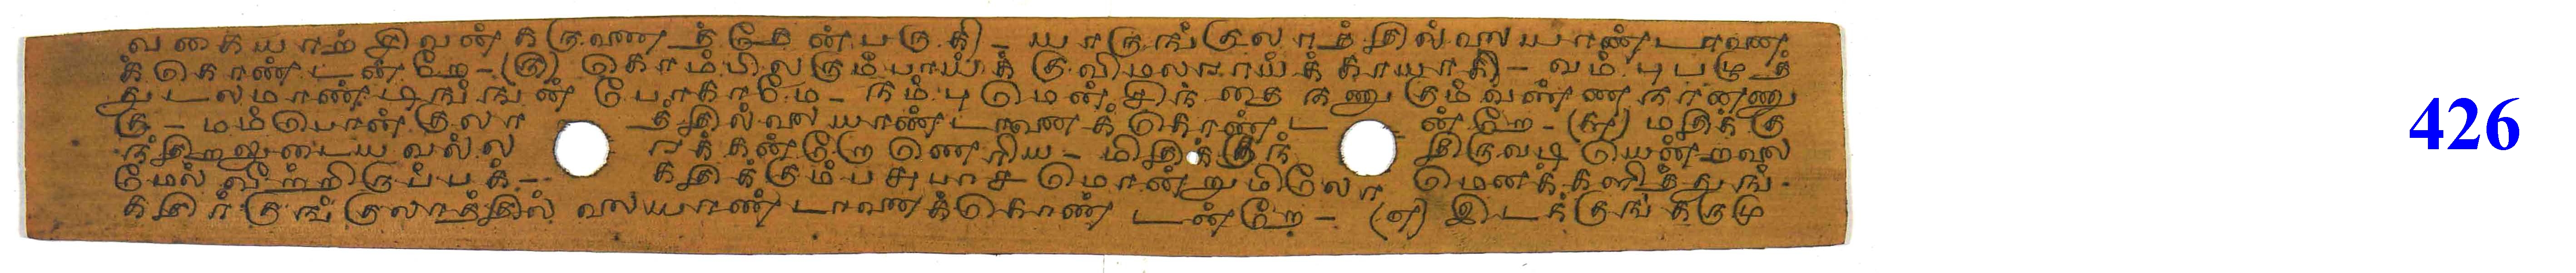 வகையாற் சிவன் கருணைத் தேன்பருகி - யாருங்குலாத்தில்லையாண்டானை
க் கொண்டன்றே - (௫) கொம்பிலரும்பாய்க் குவிமலராய்க்காயாகி - வம்பு பழுத்
துடலமாண்டிங்ஙன் போகாமே - நம்புமென் சிந்தை நணுகும்வண்ணநானணு
கு - மம்பொன்குலாத்தில்லையாண்டானைக் கொண்டன்றே - (௬) மதிக்கு
ந்திறலுடைய வல்லரக்கன்றோணெரிய - மிதிக்குந்திருவடி யென்றலை
மேல் வீற்றிருப்பக் - கதிக்கும்பசுபாச மொன்றுமிலோ மெனக்களித்துங்
கதிர்குங் குலாத்தில்லையாண்டானைக்கொண்டன்றே - (௭) இடக்குங் கருமு
426